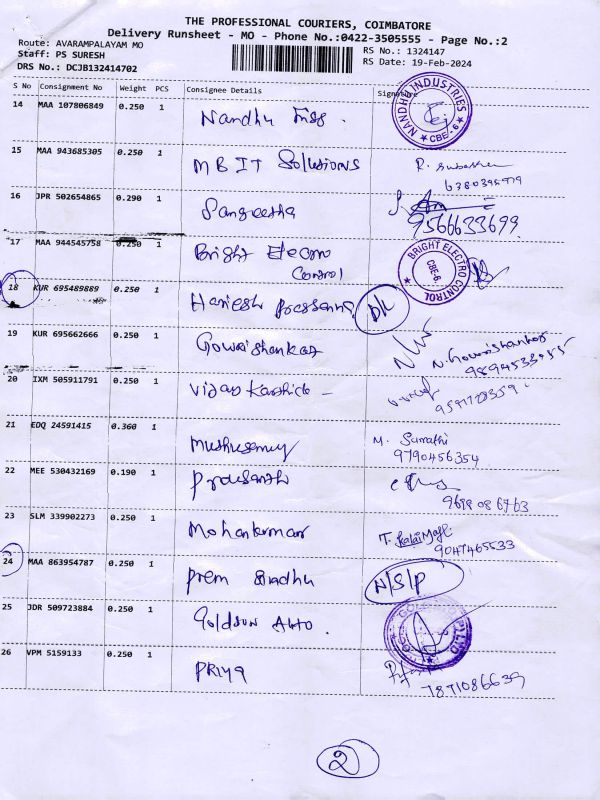 THE PROFESSIONAL COURIERS, COIMBATORE
Delivery Runsheet - MO - Phone No.:0422-3505555 - Page No.:2
Route: AVARAMPALAYAM MO
RS No.: 1324147
Staff: PS SURESH
RS Date: 19-Feb-2024
DRS No.: DCJB132414702
S No Consignment No Weight PCS Consignee Details Signature
14 MAA 107806849 0.250 1 Nandhu
NANDHU INDUSTRIES CBE-6
15 MAA 943685305 0.250 1 MBIT Solusions
16 JPR 502654865 0.290 1 Sangeetha
9566633699
17 MAA 944545758 0.250 1 Bright Elecro
Control
BRIGHT ELECTRO CONTROL CBE-6
18 KUR 695489889 0.250 1 Harriesh Prassanna D/L
19 KUR 695662666 0.250 1 Gowrishankar
N. Gowrishankar
20 IXM 505911791 0.250 1 Vijay Karthick -
21 EDQ 24591415 0.360 1 Muthusamy
M. Sumathi
9790456354
22 MEE 530432169 0.190 1 Prasanth
9699086763
23 SLM 339902273 0.250 1 Mohankumar
T. Kalai
9047465533
24 MAA 863954787 0.250 1 Prem N/S/P
25 JDR 509723884 0.250 1 Goldsun Auto.
26 VPM 5159133 0.250 1 PRIYA
7871086639
2